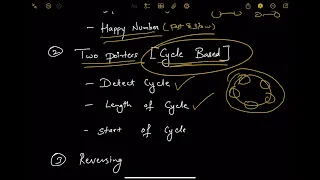 - Happy Number (Fast & Slow)
② Two pointers [Cycle Based]
- Detect Cycle
- Length of Cycle
- Start of Cycle
③ Reversing